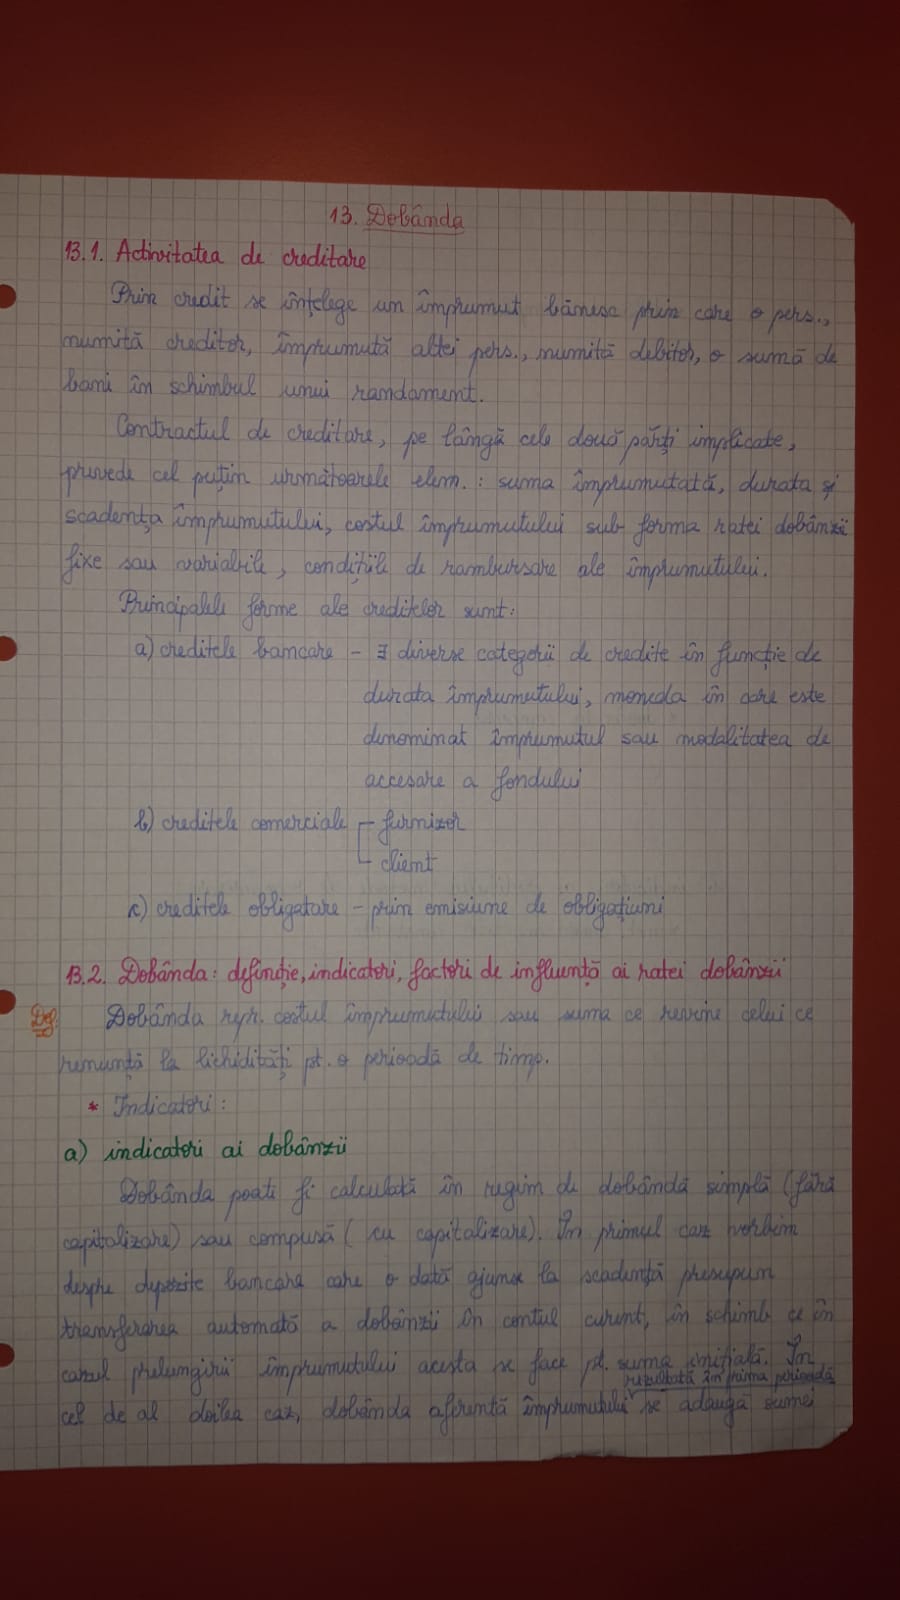 13. Dobânda
13.1. Activitatea de creditare
Prin credit se înțelege un împrumut bănesc prin care o pers.,
numită creditor, împrumută altei pers., numită debitor, o sumă de
bani în schimbul unui randament.
Contractul de creditare, pe lângă cele două părți implicate,
prevede cel puțin următoarele elem.: suma împrumutată, durata și
scadența împrumutului, costul împrumutului sub forma ratei dobânzii
fixe sau variabile, condițiile de rambursare ale împrumutului.
Principalele forme ale creditelor sunt:
a) creditele bancare - ∃ diverse categorii de credite în funcție de
durata împrumutului, moneda în care este
denominat împrumutul sau modalitatea de
accesare a fondului
b) creditele comerciale - furnizor
- client
c) creditele obligatare - prin emisiune de obligațiuni
13.2. Dobânda: definiție, indicatori, factori de influență ai ratei dobânzii
Def. Dobânda repr. costul împrumutului sau suma ce revine celui ce
renunță la lichidități pt. o perioadă de timp.
* Indicatori:
a) indicatori ai dobânzii
Dobânda poate fi calculată în regim de dobândă simplă (fără
capitalizare) sau compusă (cu capitalizare). În primul caz vorbim
despre depozite bancare care o dată ajunse la scadență presupun
transferarea automată a dobânzii în contul curent, în schimb ce în
cazul prelungirii împrumutului acesta se face pt. suma inițială. În
rezultată în prima perioadă
cel de al doilea caz, dobânda aferentă împrumutului se adaugă sumei